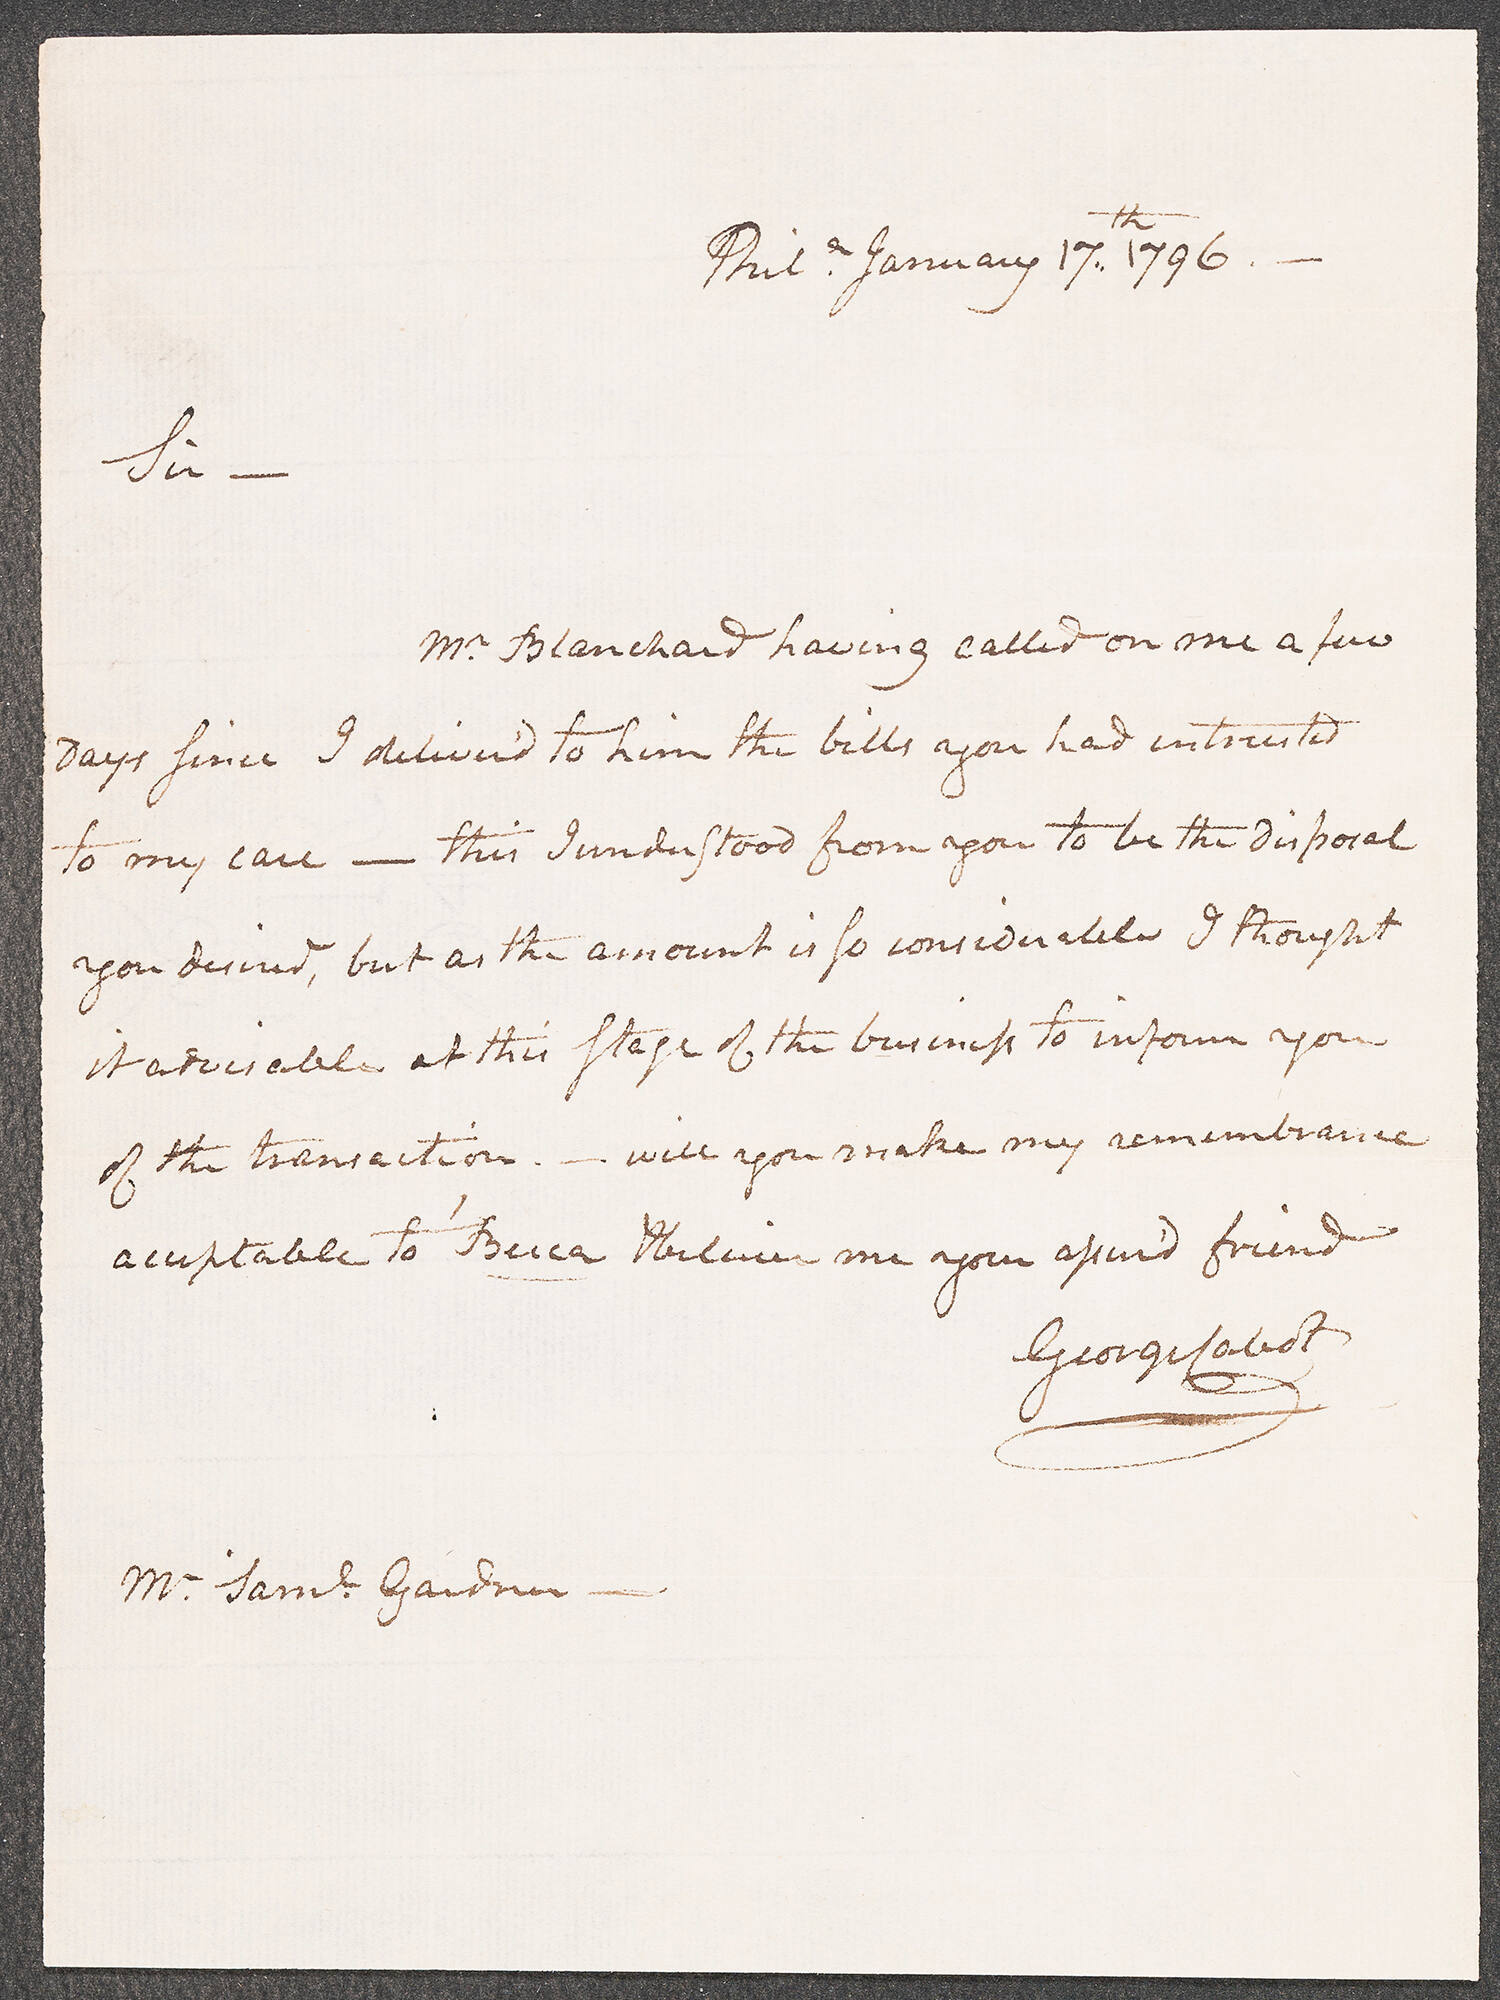 Phil.ª January 17.th 1796. —
Sir —
Mr. Blanchard having called on me a few
Days since I deliver'd to him the bills you had intrusted
to my care — this I understood from you to be the disposal
you desired, but as the amount is so considerable I thought
it advisable at this stage of the business to inform you
of the transaction. — will you make my remembrance
acceptable to Becca & believe me your assur'd friend
George Cabot
Mr. Saml. Gardner —